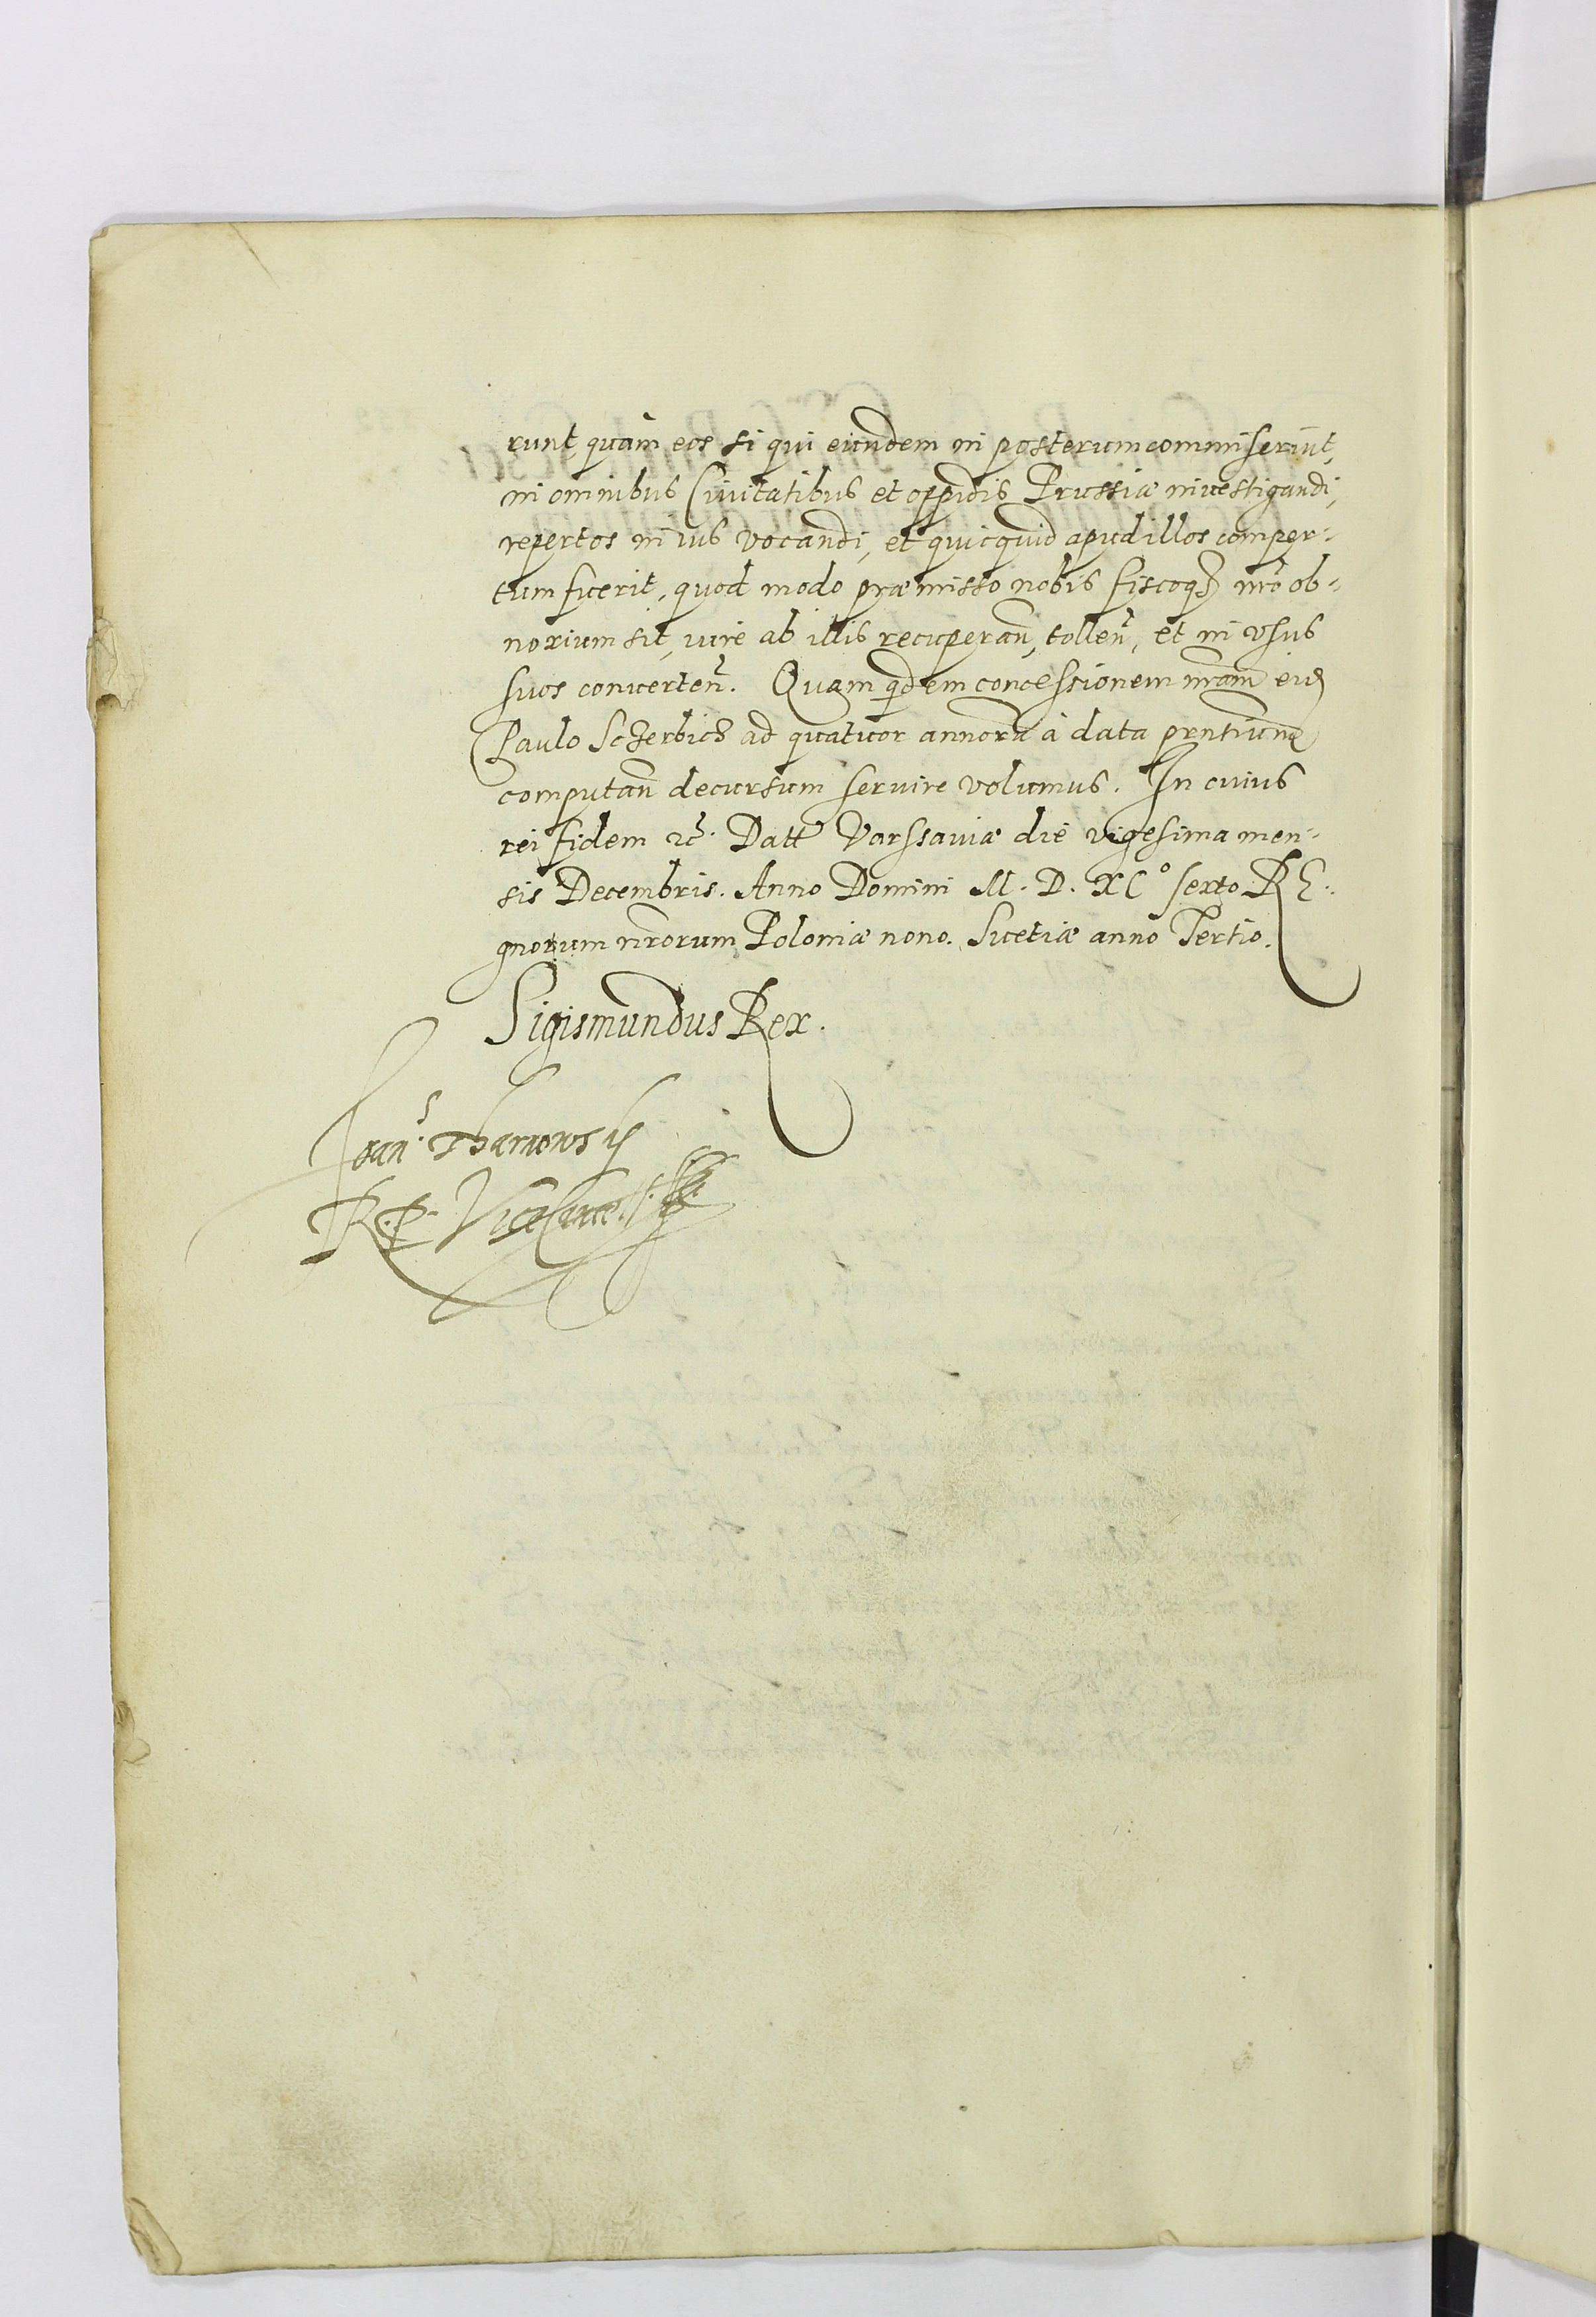 runt, quàm eos si qui eiundem in posterum commiseriūt,
in omnibus Civitatibus et oppidis Prussiæ investigandi,
repertos in ius vocandi, et quicquid apud illos comper-
tum fuerit, quod modo præmisso nobis fiscoq₃ nr̄o ob-
noxium sit, iure ab illis recuperan̄, tollen̄, et in vsus
suos converten̄. Quam qdem concessionem nr̄am eid
Paulo Sczerbicz ad quatuor annorū à data pr̄ntium
computan̄ decursum servire volumus. In cuius
rei fidem &c. Datt Varssaviæ die vigesima men-
sis Decembris. Anno Domini M. D. XCº sexto RE-
gnorum nr̄orum Poloniæ nono. Suetiæ anno Tertio.
Sigismundus Rex.
Joan̄s Tharnowsky
R. P. Vicecancell.